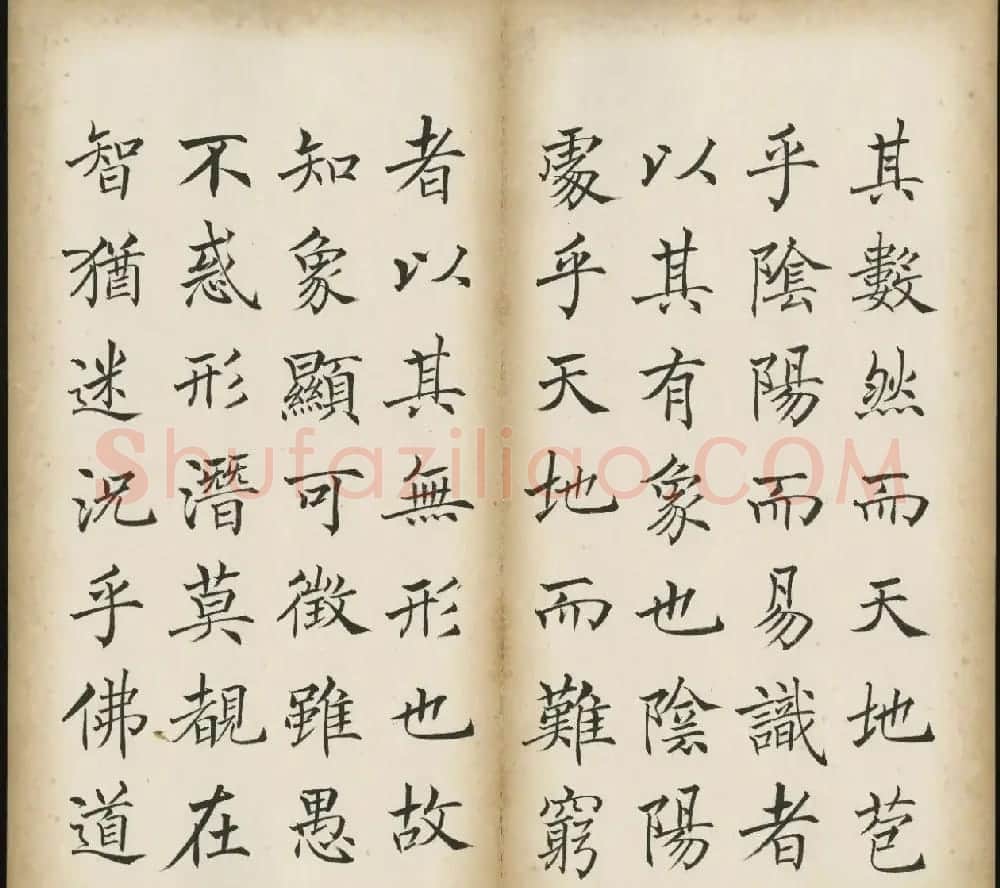 其數然而天地苞
乎陰陽而易識者
以其有象也陰陽
處乎天地而難窮
者以其無形也故
知象顯可徵雖愚
不惑形潛莫覩在
智猶迷況乎佛道
Shufaziliao.COM